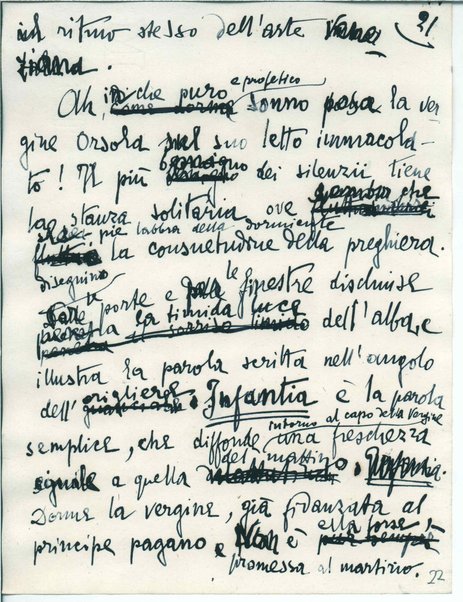 nel ritmo stesso dell'arte Vene
ziana.
21
Ah, in che puro e profetico sonno posa la ver
gine Orsola nel suo letto immacola-
to! Il più benigno dei silenzii tiene
la stanza solitaria ove sembra che
su le pie labbra della dormiente
disegnino la consuetudine della preghiera.
Per le porte e per le finestre dischiuse
penetra la timida luce dell'alba, e
illustra la parola scritta nell'angolo
dell'origliere. Infantia è la parola
semplice, che diffonde intorno al capo della vergine una freschezza
eguale a quella del mattino. Infantia.
Dorme la vergine, già fidanzata al
principe pagano e
Non è ella forse
promessa al martirio.
22